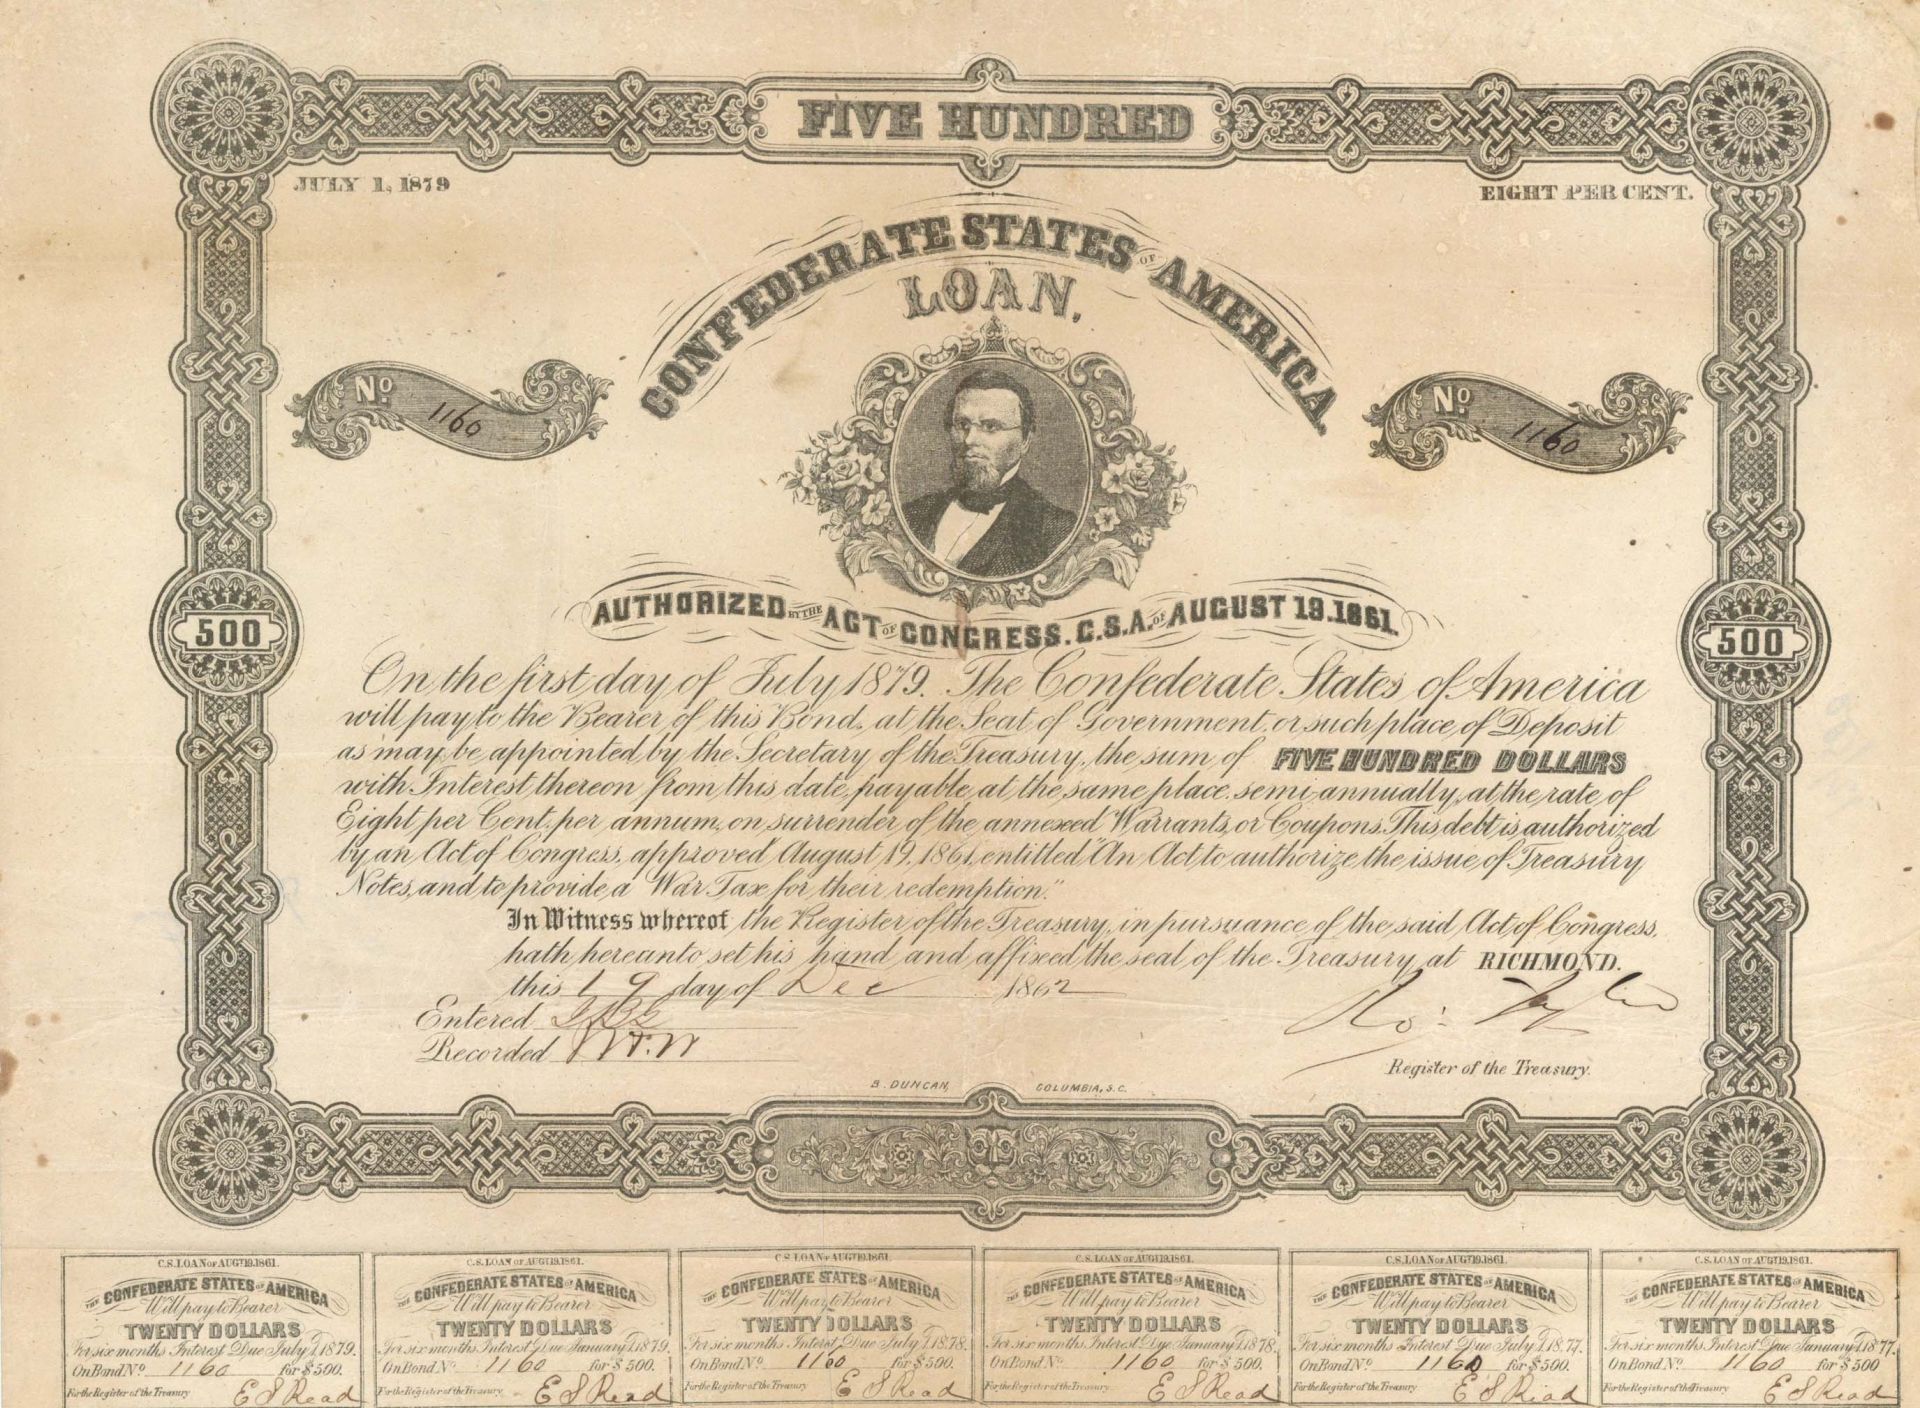 FIVE HUNDRED
JULY 1, 1879
EIGHT PER CENT.
CONFEDERATE STATES OF AMERICA
LOAN,
No. 1160
No. 1160
AUTHORIZED BY THE ACT OF CONGRESS. C.S.A. OF AUGUST 19.1861.
500
500
On the first day of July 1879. The Confederate States of America
will pay to the Bearer of this Bond, at the Seat of Government, or such place of Deposit
as may be appointed by the Secretary of the Treasury, the sum of FIVE HUNDRED DOLLARS
with Interest thereon from this date, payable at the same place, semi-annually, at the rate of
Eight per Cent. per annum, on surrender of the annexed Warrants, or Coupons. This debt is authorized
by an Act of Congress, approved August 19, 1861, entitled "An Act to authorize the issue of Treasury
Notes, and to provide a War Tax for their redemption."
In Witness whereof the Register of the Treasury, in pursuance of the said Act of Congress,
hath hereunto set his hand and affixed the seal of the Treasury, at RICHMOND.
this 19 day of Dec 1862
Entered
Recorded
Ro: Tyler
Register of the Treasury.
B. DUNCAN, COLUMBIA, S.C.
C.S. LOAN OF AUGT 19.1861.
THE CONFEDERATE STATES OF AMERICA
Will pay to Bearer
TWENTY DOLLARS
For six months Interest Due July 1, 1879.
On Bond No. 1160 for $500.
For the Register of the Treasury
E S Read
C.S. LOAN OF AUGT 19.1861.
THE CONFEDERATE STATES OF AMERICA
Will pay to Bearer
TWENTY DOLLARS
For six months Interest Due January 1, 1879.
On Bond No. 1160 for $500.
For the Register of the Treasury
E S Read
C.S. LOAN OF AUGT 19.1861.
THE CONFEDERATE STATES OF AMERICA
Will pay to Bearer
TWENTY DOLLARS
For six months Interest Due July 1, 1878.
On Bond No. 1160 for $500.
For the Register of the Treasury
E S Read
C.S. LOAN OF AUGT 19.1861.
THE CONFEDERATE STATES OF AMERICA
Will pay to Bearer
TWENTY DOLLARS
For six months Interest Due January 1, 1878.
On Bond No. 1160 for $500.
For the Register of the Treasury
E S Read
C.S. LOAN OF AUGT 19.1861.
THE CONFEDERATE STATES OF AMERICA
Will pay to Bearer
TWENTY DOLLARS
For six months Interest Due July 1, 1877.
On Bond No. 1160 for $500.
For the Register of the Treasury
E S Read
C.S. LOAN OF AUGT 19.1861.
THE CONFEDERATE STATES OF AMERICA
Will pay to Bearer
TWENTY DOLLARS
For six months Interest Due January 1, 1877.
On Bond No. 1160 for $500
For the Register of the Treasury
E S Read